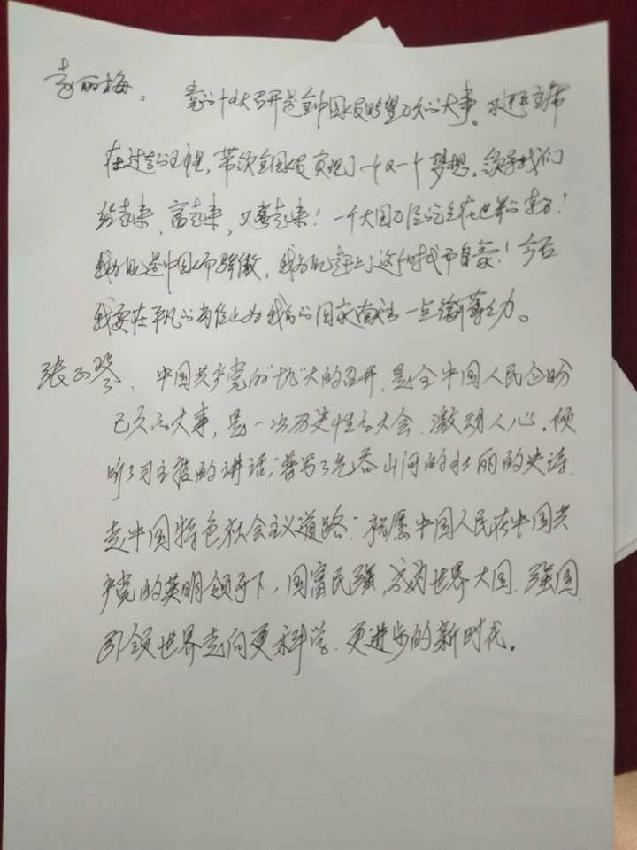 袁丽梅: 党的十九大召开是全中国人民盼望已久的大事。习近平主席
在过去的五年里,带领全国人民实现了一个又一个梦想,领导我们
站起来,富起来,又强起来!一个大国已经屹立在世界的东方!
我为我是中国人而骄傲,我为我赶上了这个时代而自豪!今后
我要在平凡的岗位上为我们的国家贡献一点微薄之力。
张玉琴. 中国共产党的"十九"大的召开,是全中国人民企盼
已久的大事,是一次历史性的大会,激动人心,倾
听了习主席的讲话,谱写了气吞山河的壮丽的史诗.
走中国特色社会主义道路.祝愿中国人民在中国共
产党的英明领导下,国富民强,成为世界大国.强国.
引领世界走向更科学.更进步的新时代。